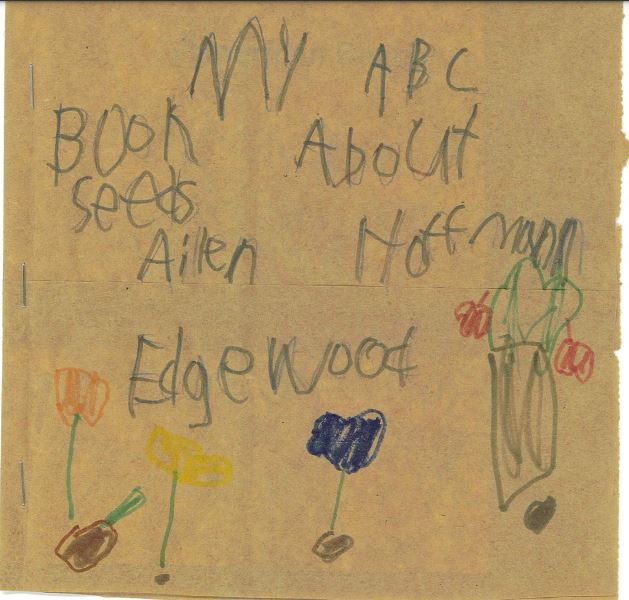 My ABC
Book About
seeds
Aillen Hoffmann
Edgewood